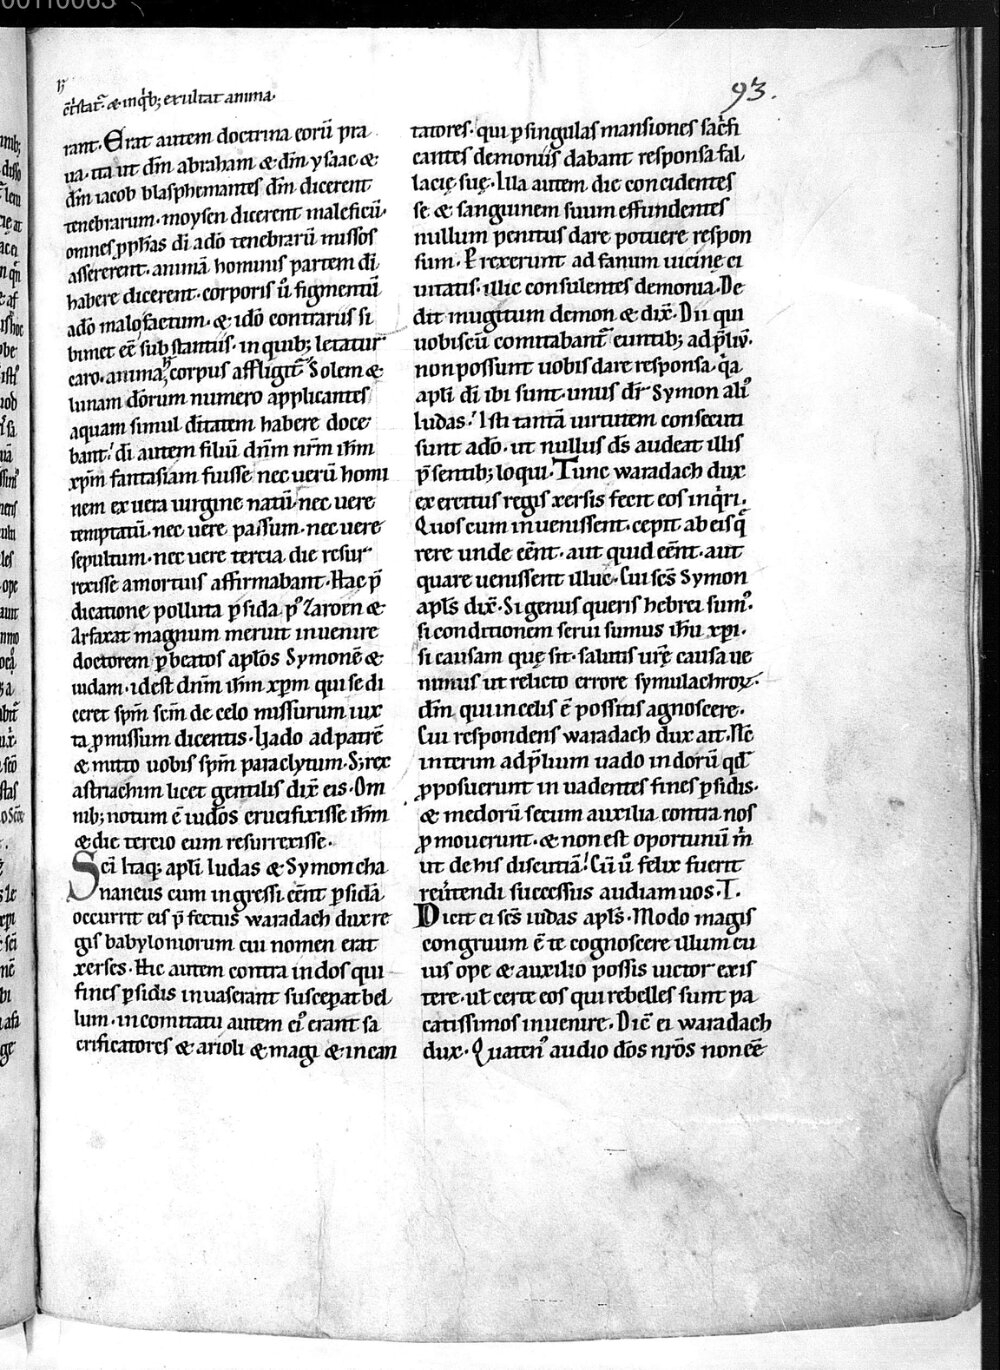 00110063
93.
ct̄stat᷑· & inq̇b; exultat anima·
rant· Erat autem doctrina eorū pra
ua· ita ut dm̄ abraham & dm̄ ysaac &
dm̄ iacob blasphemantes dm̄ dicerent
tenebrarum· moysen dicerent maleficū·
omnes ꝓph̄as di ̄ado tenebrarū missos
assererent· animā hominis partem di ̄
habere dicerent· corporis ū figmentū
adō malo factum· & idō contrariis si
bimet eē substantiis· in quib; letatur
caro· anima corpus affligit᷑ Solem &
lunam dōrum numero applicantes
aquam simul dītatem habere doce
bant· di ̄autem filiū dnm̄ nrm̄ ihm̄
xpm̄ fantasiam fuisse nec uerū homi
nem ex uera uirgine natū· nec uere
temptatū· nec uere passum· nec uere
sepultum· nec uere tercia die resur
rexisse a mortuis affirmabant· Hac p̄
dicatione polluta ꝑsida p᷒ Zaroen &
Arfaxat magnum meruit inuenire
doctorem ꝑ beatos apl̄os Symonē &
iudam· idest dnm̄ ihm̄ xpm̄ qui se di
ceret spm̄ scm̄ de celo missurum iux
ta ꝓmissum dicentis· Uado ad patrē
& mitto uobis spm̄ paraclytum· S; rex
astriachim licet gentilis dix̄ eis· Om
nib; notum ē iudōs crucifixisse ihm̄
& die tercio eum resurrexisse·
Sci ̄Itaq; apl̄i Iudas & Symon cha
naneus cum ingressi cēnt ꝑsidā
occurrit eis p̄fectus waradach dux re
gis babyloniorum cui nomen erat
xerses· Hic autem contra indos qui
fines ꝑsidis inuaserant susceperat bel
lum· in comitatu autem ei᷒ erant sa
crificatores & arioli & magi & incan
tatores· qui ꝑ singulas mansiones sac̄fi
cantes demoniis dabant responsa fal
lacię suę· Illa autem die concidentes
se & sanguinem suum effundentes
nullum penitus dare potuere respon
sum· Perrexerunt ad fanum uicinę ci
uitatis· illic consulentes demonia· De
dit mugitum demon & dix̄· Dii qui
uobiscū comitabant᷑ euntib; ad p̄liū·
non possunt uobis dare responsa· q̇a
apl̄i di ̄ibi sunt· unus dr̄ Symon ali᷒
Iudas· Isti tantā uirtutem consecuti
sunt adō· ut nullus ds̄ audeat illis
p̄sentib; loqui· Tunc waradach dux
exercitus regis xersis fecit eos inq̇ri·
Quos cum inuenissent· cepit ab eis q̄
rere unde eēnt· aut quid eēnt· aut
quare uenissent illuc· Cui scs̄ Symon
apls̄ dix̄· Si genus queris hebrei sum᷒·
si conditionem serui sumus ihu ̄xpi·
si causam quę sit· salutis urę̄ causa ue
nimus ut relicto errore symulachroꝝ·
dm̄ qui in celis ē possitis agnoscere·
Cui respondens waradach dux ait· Nc̄
interim ad p̄lium uado indorū qd̄
ꝓposuerunt inuadentes fines ꝑsidis·
& medorū secum auxilia contra nos
ꝓmouerunt· & non est oportunū ṁ
ut de his discutiā· Cū ū felix fuerit
reūtendi successus audiam uos· T.
Dicit ei scs̄ iudas apls̄· Modo magis
congruum ē te cognoscere illum cu
ius ope & auxilio possis uictor exis
tere· ul̄ certe eos qui rebelles sunt pa
catissimos inuenire· Dic̄ ei waradach
dux· Quaten᷒ audio dōs nrōs non eē